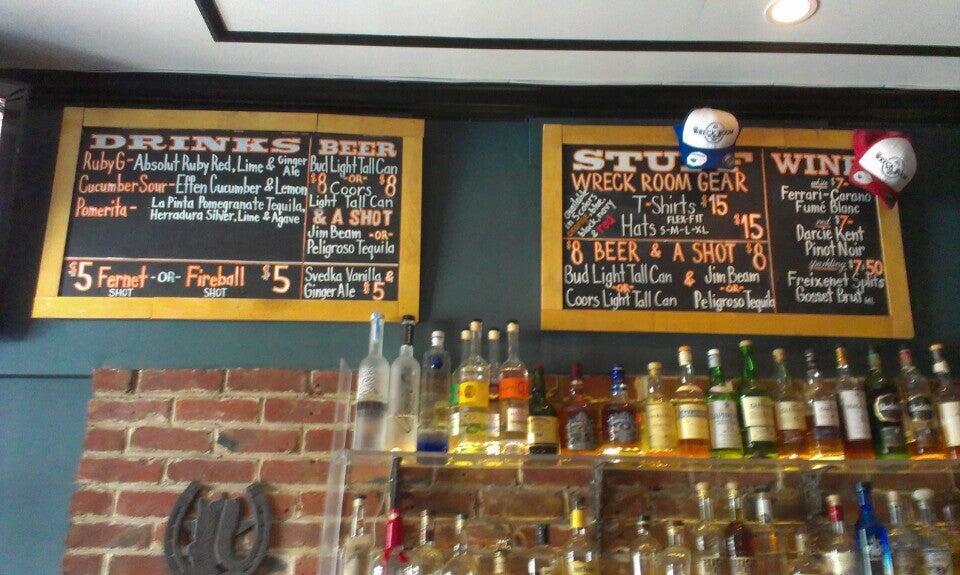 DRINKS
Ruby G - Absolut Ruby Red, Lime & Ginger Ale
Cucumber Sour - Effen Cucumber & Lemon
Pomerita - La Pinta Pomegranate Tequila,
Herradura Silver, Lime & Agave
$5 Fernet -OR- Fireball $5
SHOT SHOT
BEER
Bud Light Tall Can
$8 -OR- $8
Coors
Light Tall Can
& A SHOT
Jim Beam -OR-
Peligroso Tequila
Svedka Vanilla &
Ginger Ale $5
STUFF
WRECK ROOM GEAR
T-Shirts $15
Hats FLEX-FIT S-M-L-XL $15
black, navy
& red
$8 BEER & A SHOT $8
Bud Light Tall Can & Jim Beam
-OR- -OR-
Coors Light Tall Can Peligroso Tequila
WINE
white $7-
Ferrari-Carano
Fumé Blanc
red $7-
Darcie Kent
Pinot Noir
sparkling $7.50
Freixenet Splits
Gosset Brut
WRECK ROOM